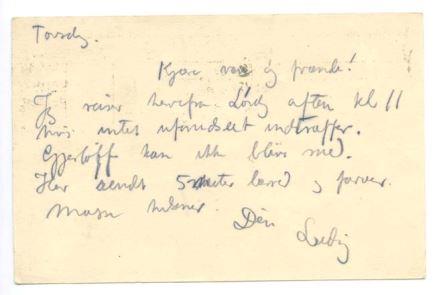 Torsdg.
Kjære ven og frænde!
Jeg reiser herfra Lørdg aften kl 11
hvis intet uforudseet indtræffer.
kan ikke blive med.
Har sendt 5 meter lærred og farver.
Mange hilsner.
Din
Ludvig